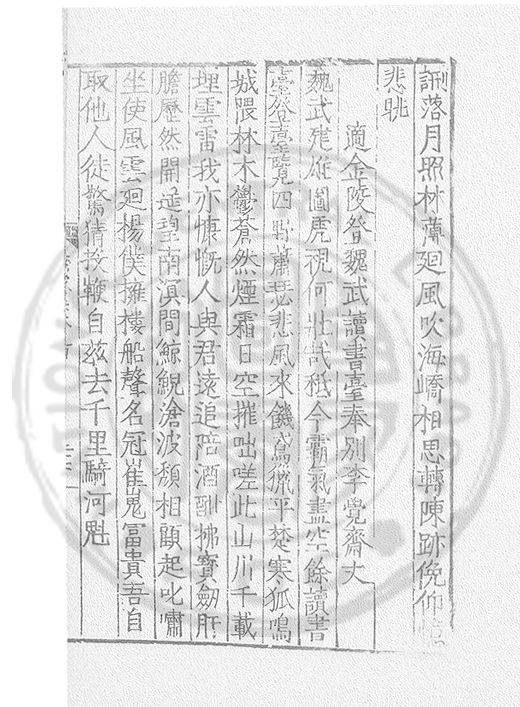 訓落月照林薄廻風吹海嶠相思轉陳跡俛仰
悲眺
適金陵登魏武讀書臺奉別李覺齋丈
魏武建雄圖虎視何壯哉秪今霸氣盡空餘讀書
臺登臺覽四野蕭瑟悲風來饑鳶鳴平楚寒狐鳴
城隈林木鬱蒼然煙霜日空摧咄嗟此山川千載
埋雲雷我亦慷慨人與君遠追陪酒酣拂寶劒肝
膽歷然開遥望南滇間鯨鯢滄波頹相顧起叱嘯
坐使風雲廻楊僕擁樓船聲名冠崔嵬富貴吾自
取他人徒驚猜投鞭自玆去千里騎河魁